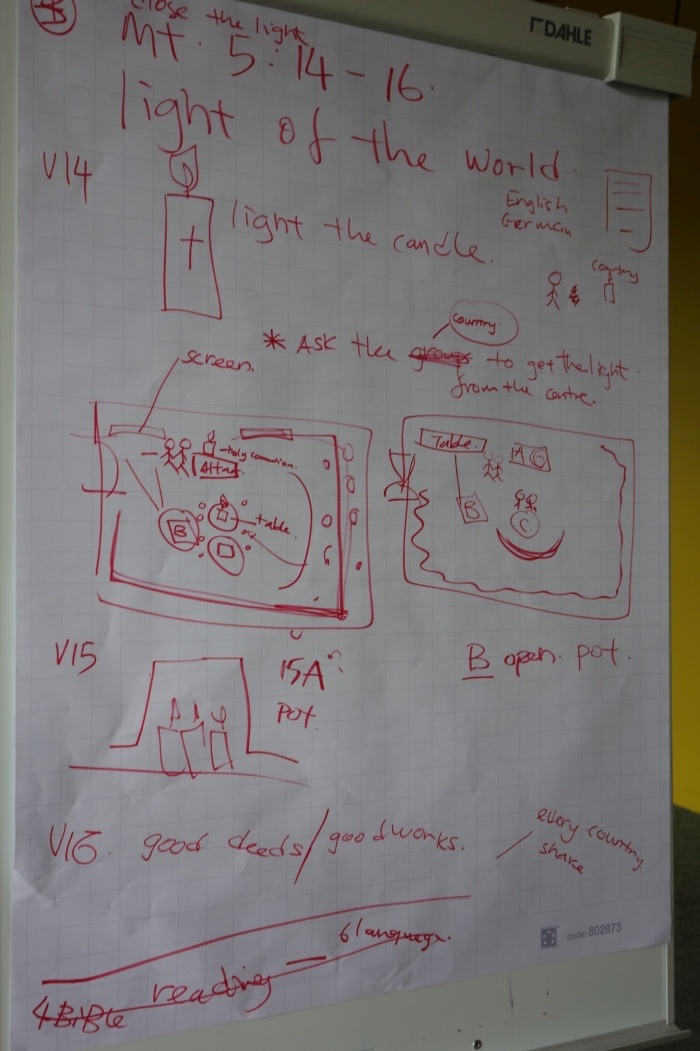 B close the light
DAHLE
Mt. 5:14-16.
light of the world.
V14
light the candle.
English
German
country
* Ask the groups to get the light
country.
from the centre.
screen.
holy communion.
Altar
table.
B
Table.
A
B
C.
V15
15A
pot
B open pot.
V16. good deeds/good works.
every country
share
code: 802873
6 language.
4 Bible reading